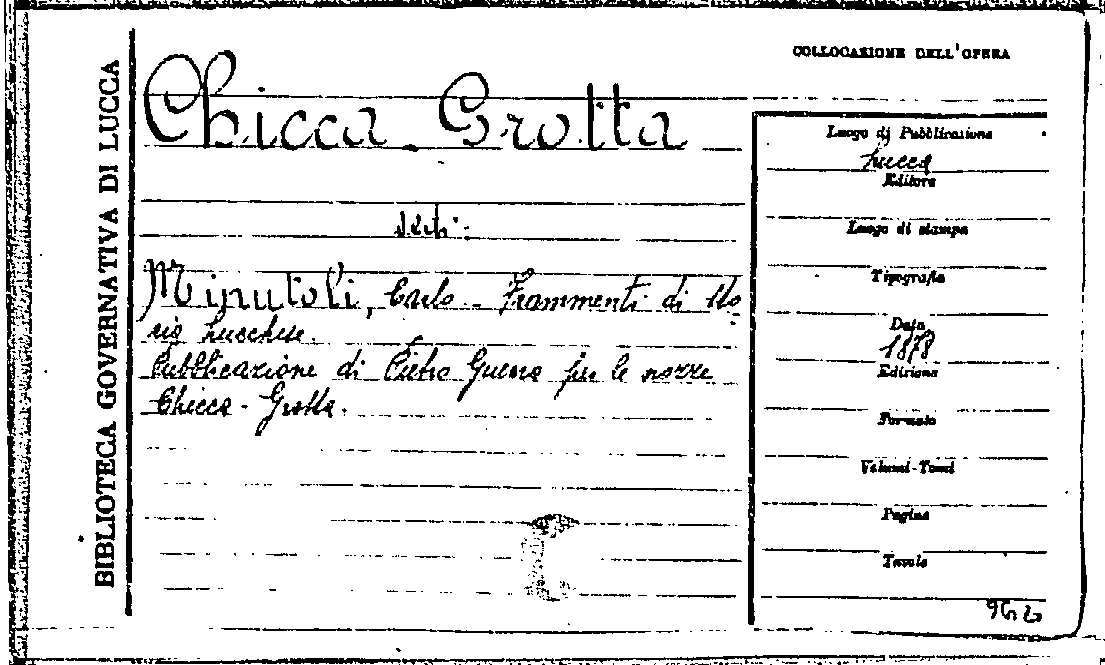 BIBLIOTECA GOVERNATIVA DI LUCCA
COLLOCAZIONE DELL'OPERA
Chicca-Grotta
vedi:
Minutoli, Carlo - Frammenti di sto
ria Lucchese.
Pubblicazione di Pietro Guerra per le nozze
Chicca-Grotta.
Luogo di Pubblicazione
Lucca
Editore
Luogo di stampa
Tipografia
Data
1878
Edizione
Formato
Volumi-Tomi
Pagine
Tavole